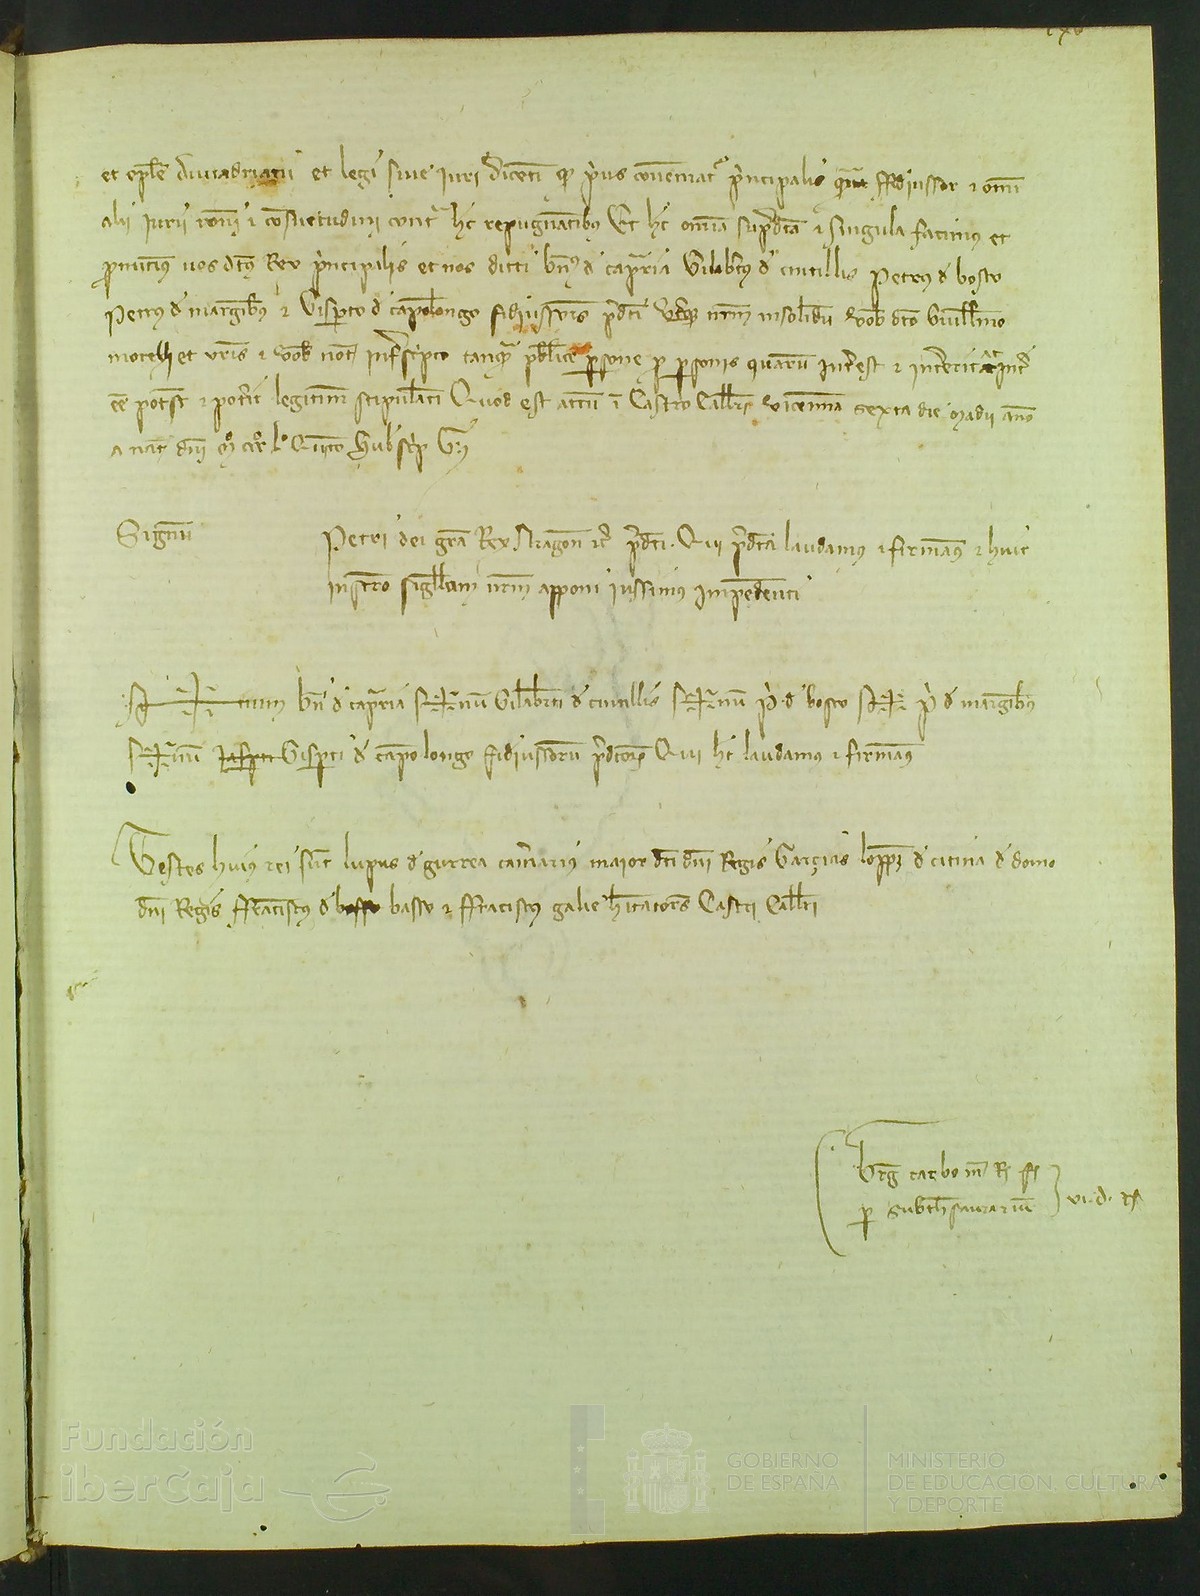 et eple divi adriani et legi sive iuri dicenti qd prius conveniatr principalis quam ffidiussor ⁊ omi
alii iurii roni ⁊ consuetudini contra hec repugnatibus Et hec omia supradca ⁊ singula facimus et
dcus Rex principalis et nos dicti bn d capraria Gilabtus d cintillis Petrus d bosco
Petrus d margibus ⁊ Gispto d campolongo fidiussores pdci nrm insolidum vob dco Guillmo
morelli et vris ⁊ vob not infrascripto tanqua publice persone pro personis quarum intest ⁊
ee potest ⁊ poterit legitime stipulanti Quod est actu i Castro Callri vicennia sexta die madii ano
a nat dni Mo CCCo Lo Quinto Subscrip
Signum
Petri dei gra Rex Aragon etc pdci. Qui pdcta laudamus ⁊ firmamus ⁊ huic
instro sigillum nrm apponi iussimus impendenti
Sig num bn d capraria Sig num Gilabti d cintillis Sig num P. d bosco Sig P d margibus
Sig num Gispti d campo longo fidiussorum pdcorum Qui hec laudamus ⁊ firmamus
Testes huius rei sut lupus d gurrea camarius maior dci dni Regis Garcias lopp d citina d domo
dni Regis ffranciscus d basso ⁊ ffraciscus galie hitatores Castri Callri
carbo m R
p subthesaurarium
vi. d.
Fundación
iberCaja
GOBIERNO
DE ESPAÑA
MINISTERIO
DE EDUCACIÓN, CULTURA
Y DEPORTE